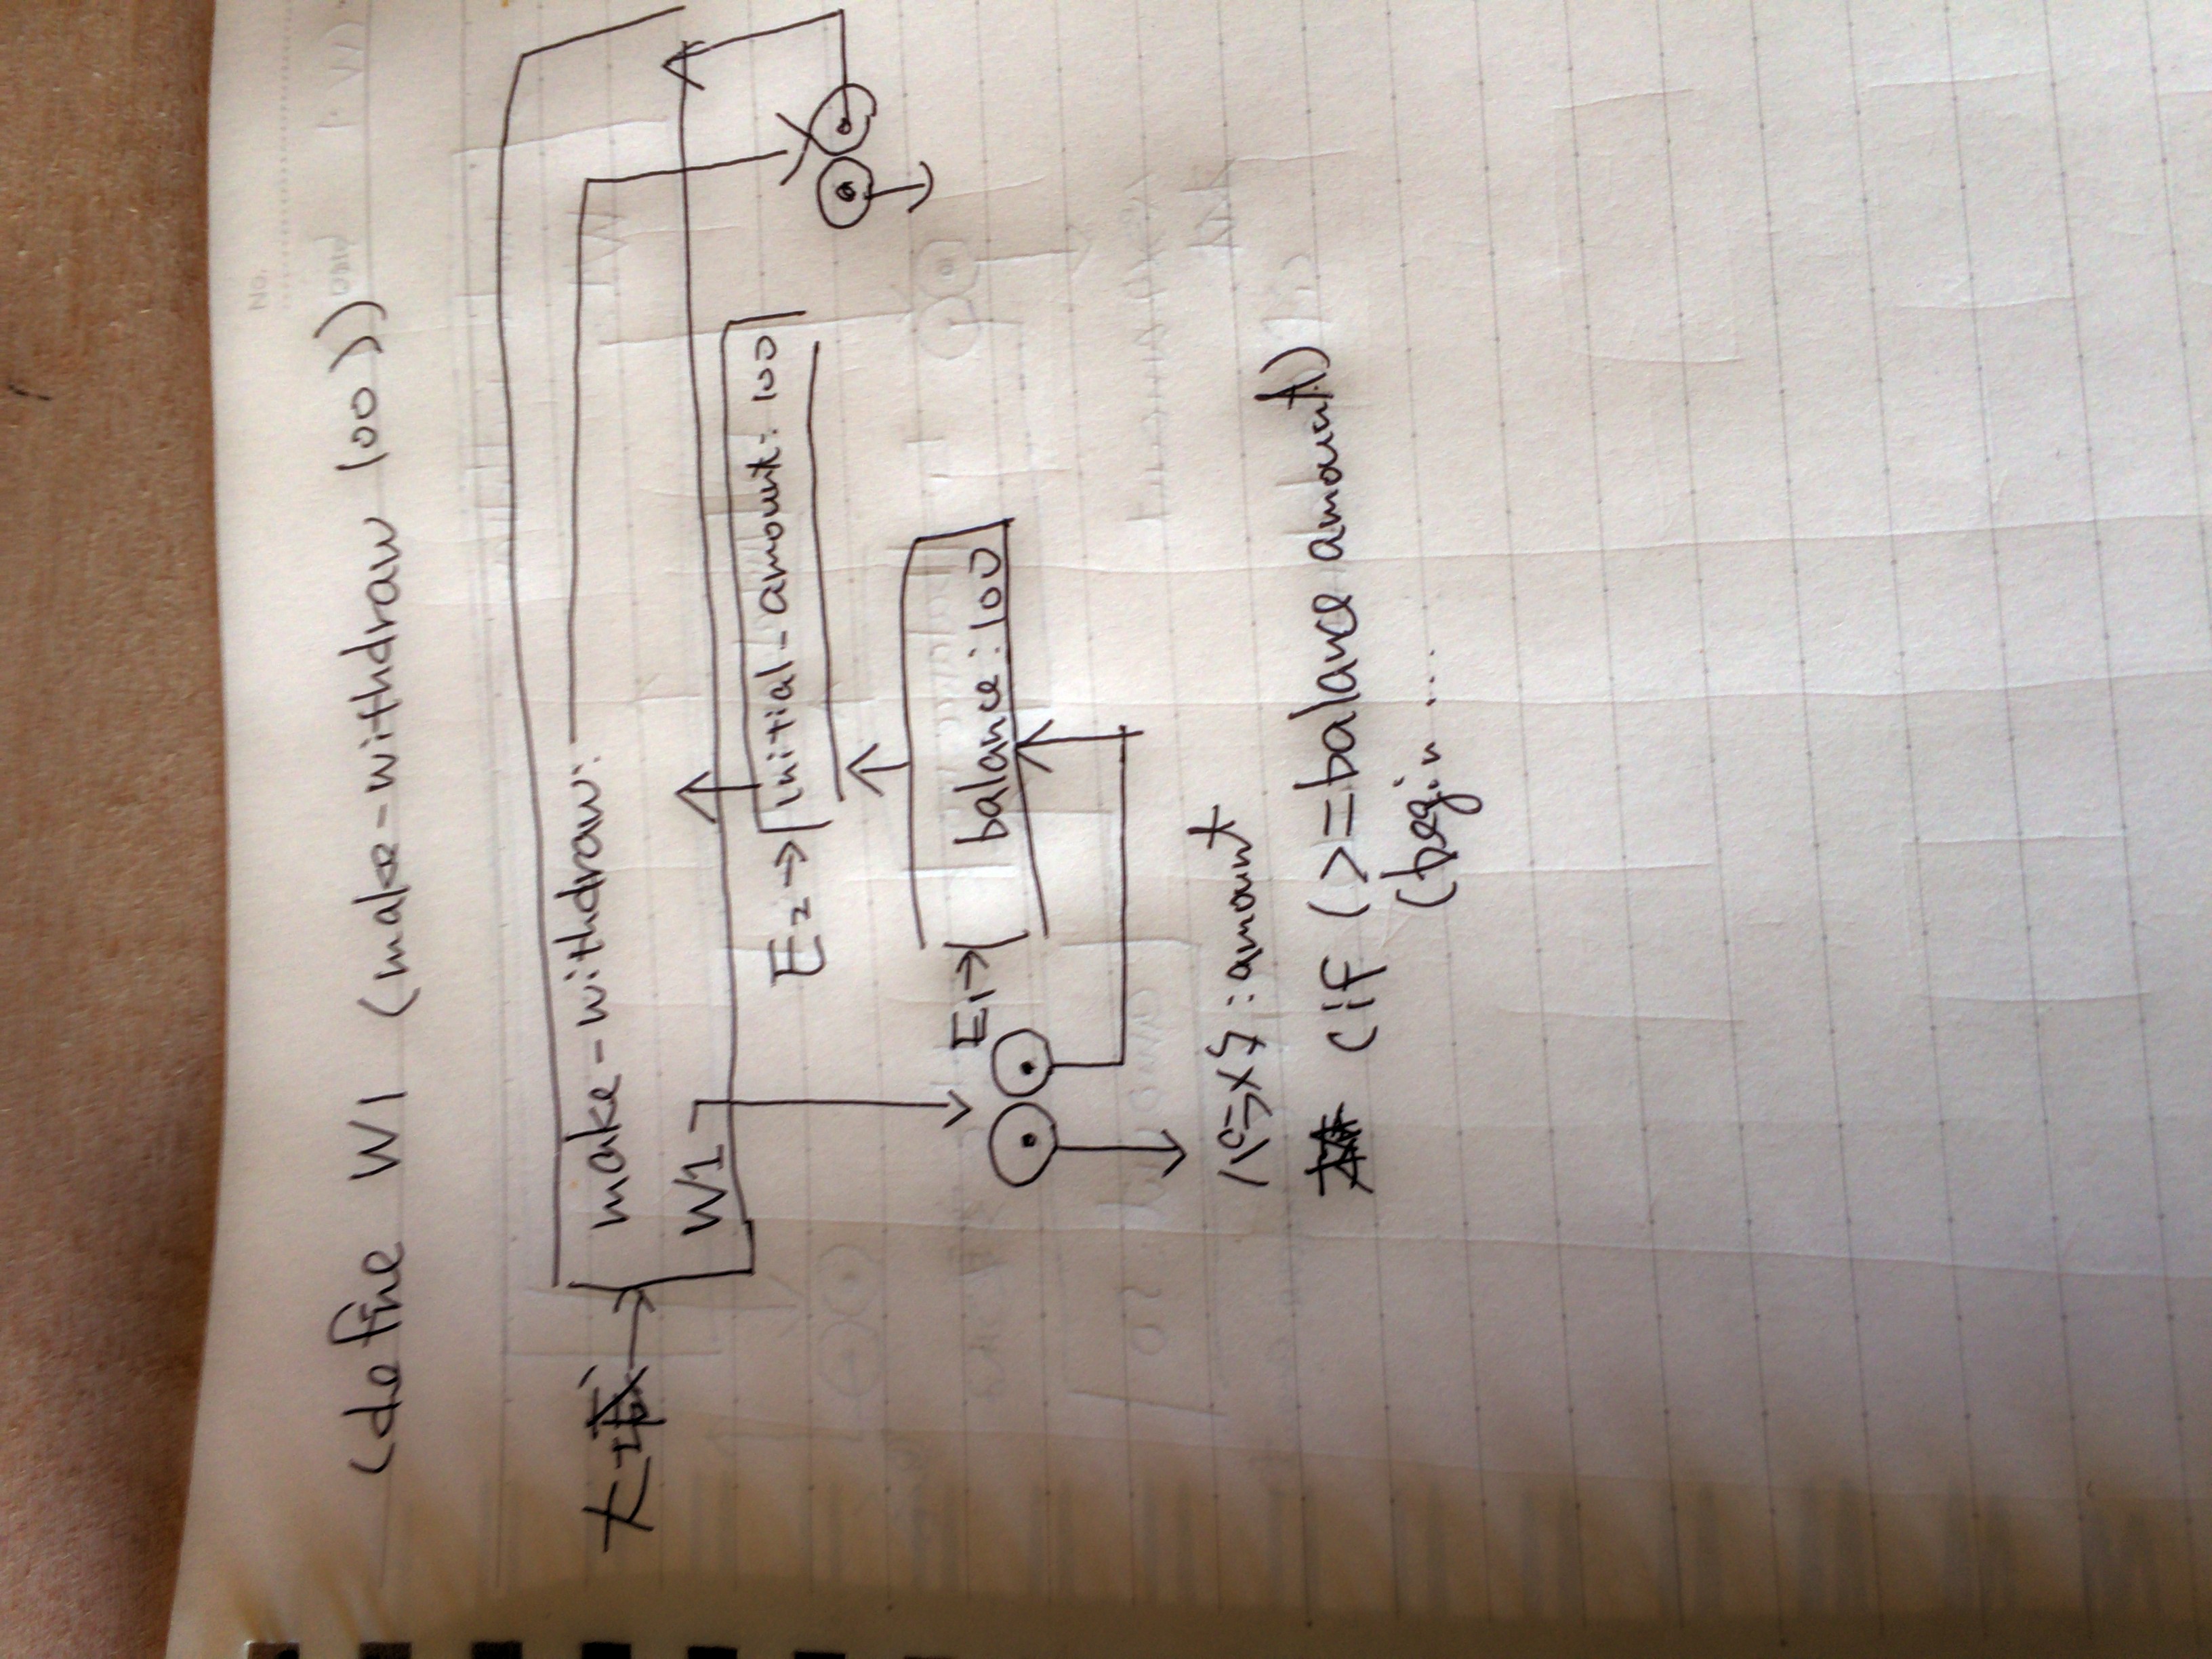 (define W1 (make-withdraw 100))
大域→
make-withdraw:
W1
E2→ initial-amount: 100
E1→ balance: 100
パラメタ:amount
(if (>=balance amount)
(begin ...